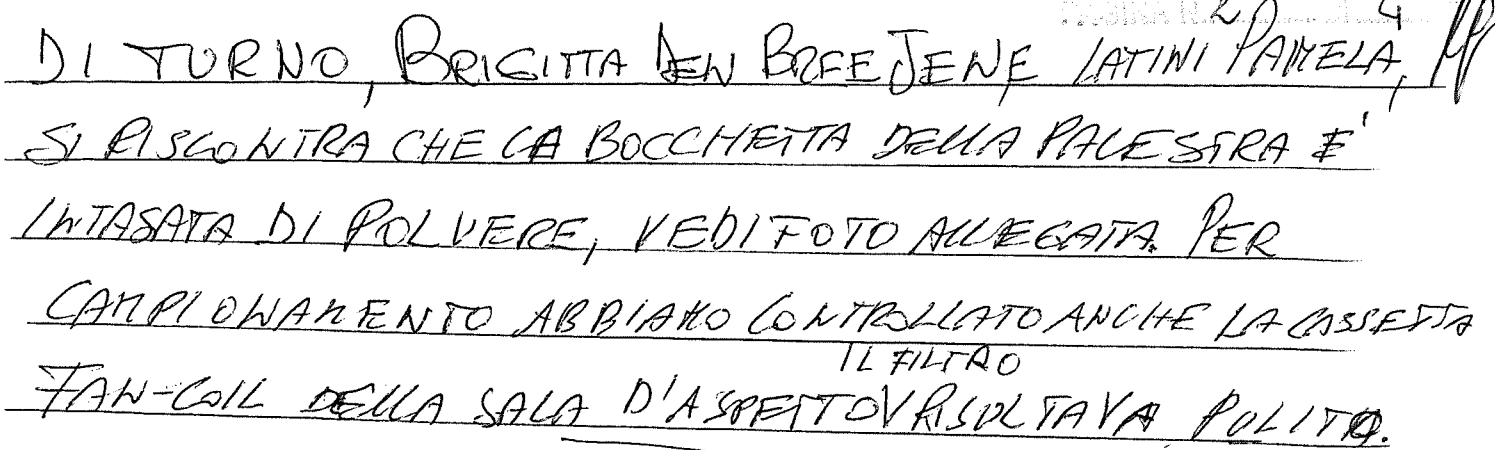 2 4
DI TURNO, BRIGITTA DEN BREEJEN E LATINI PAMELA,
SI RISCONTRA CHE LA BOCCHETTA DELLA PALESTRA E'
INTASATA DI POLVERE, VEDI FOTO ALLEGATA. PER
CAMPIONAMENTO ABBIAMO CONTROLLATO ANCHE LA CASSETTA
IL FILTRO
FAN-COIL DELLA SALA D'ASPETTO V RISULTAVA POLITO.